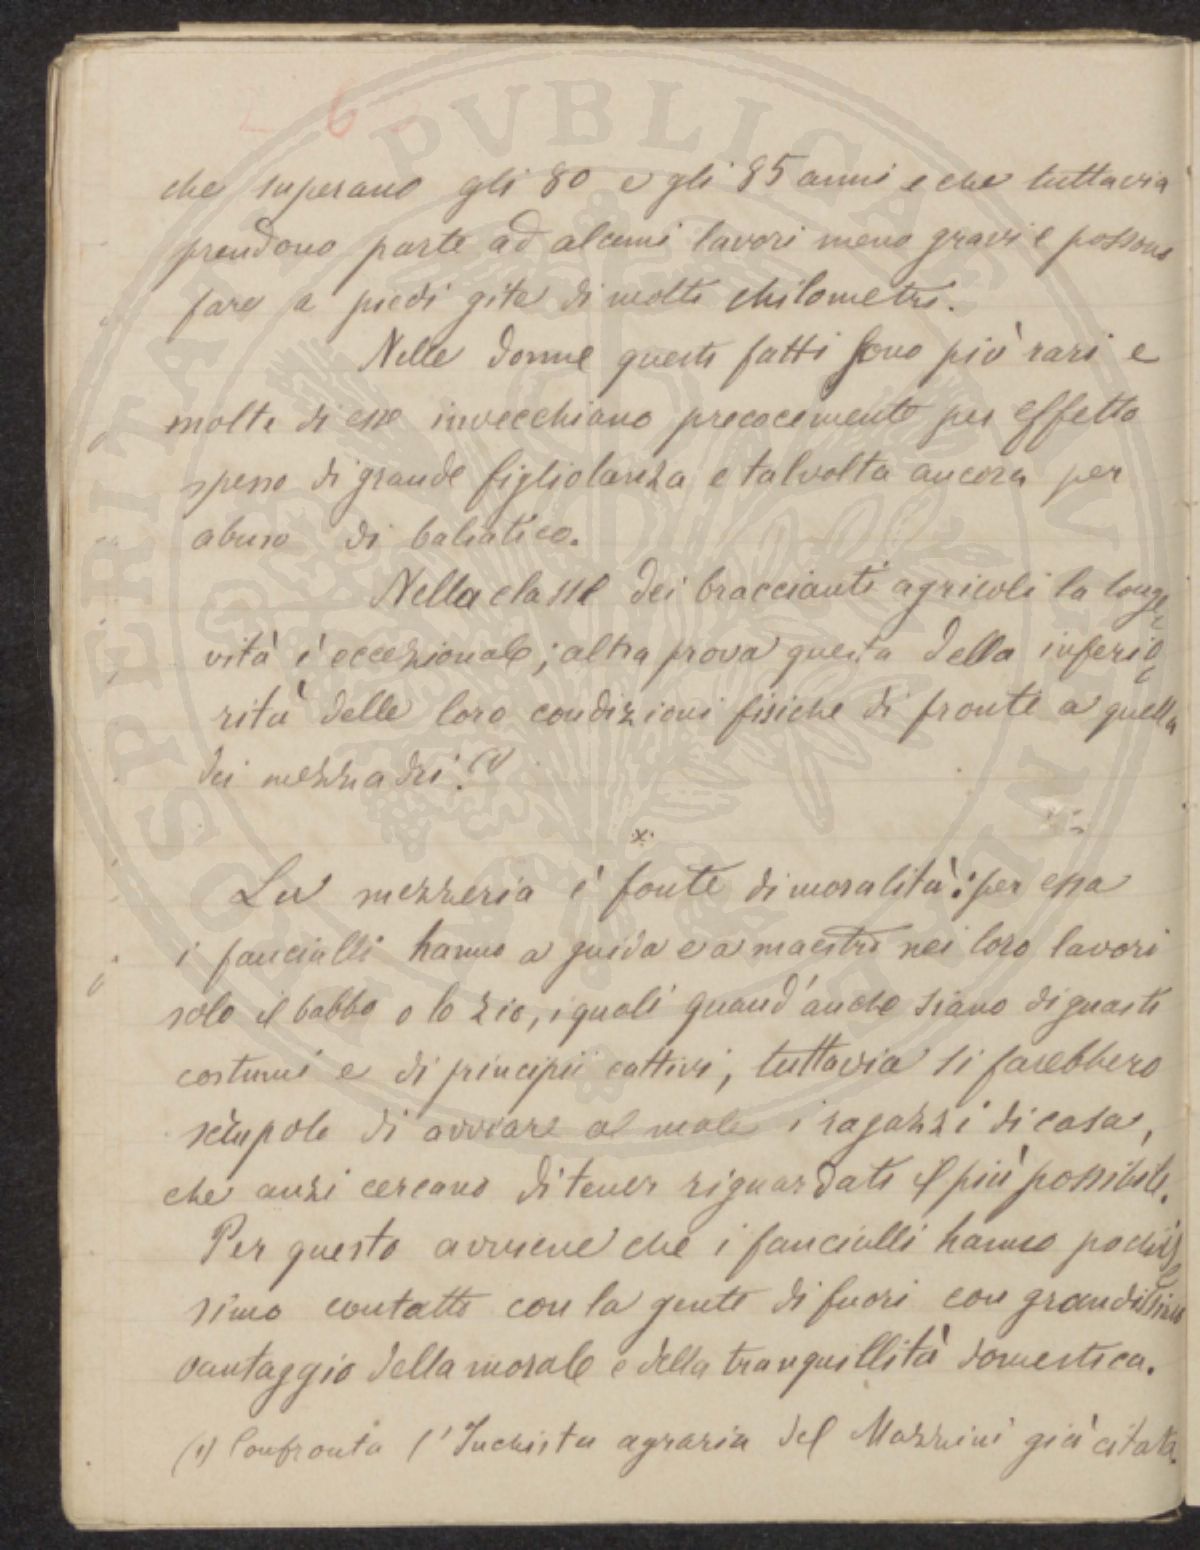 che superano gli 80 e gli 85 anni e che tuttavia
prendono parte ad alcuni lavori meno gravi e possono
fare a piedi gite di molti chilometri.
Nelle donne questi fatti sono più rari e
molte di esse invecchiano precocemente per effetto
spesso di grande figliolanza e talvolta ancora per
abuso di baliatico.
Nella classe dei braccianti agricoli la longe=
vità è eccezionale; altra prova questa della inferio=
rità delle loro condizioni fisiche di fronte a quella
dei mezzadri. (1)
x
La mezzeria è fonte di moralità: per essa
i fanciulli hanno a guida e a maestro nei loro lavori
solo il babbo o lo zio, i quali quand'anche siano di guasti
costumi e di principii cattivi, tuttavia si farebbero
scrupolo di avviare al male i ragazzi di casa,
che anzi cercano di tener riguardati il più possibile.
Per questo avviene che i fanciulli hanno pochis=
simo contatto con la gente di fuori con grandissimo
vantaggio della morale e della tranquillità domestica.
(1) Confronta l'Inchista agraria del Mazzini già citata.
PVBLICAE
PROSPERITATIS